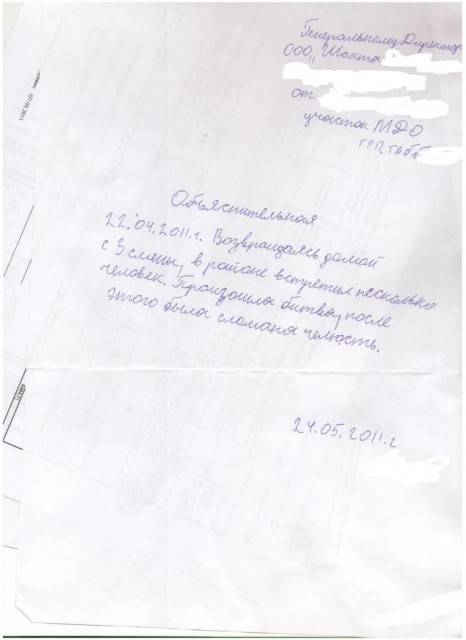 Генеральному Директору
ООО "Шахта
от
участок МДО
ГРП, таб№
Объяснительная
22.04.2011.г. Возвращаясь домой
с 3 смены, в районе встретил несколько
человек. Произошла битва, после
этого была сломана челюсть.
24.05.2011.г
07.06.2011